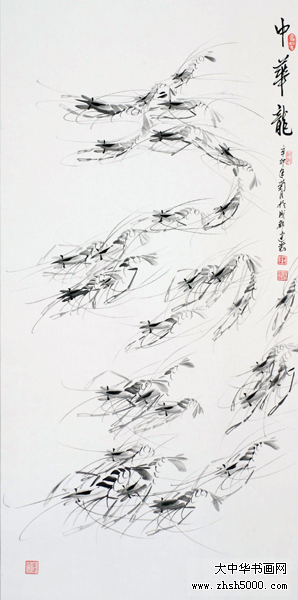 中華龍
辛卯年菊月於成都
大中华书画网
www.zhsh5000.com